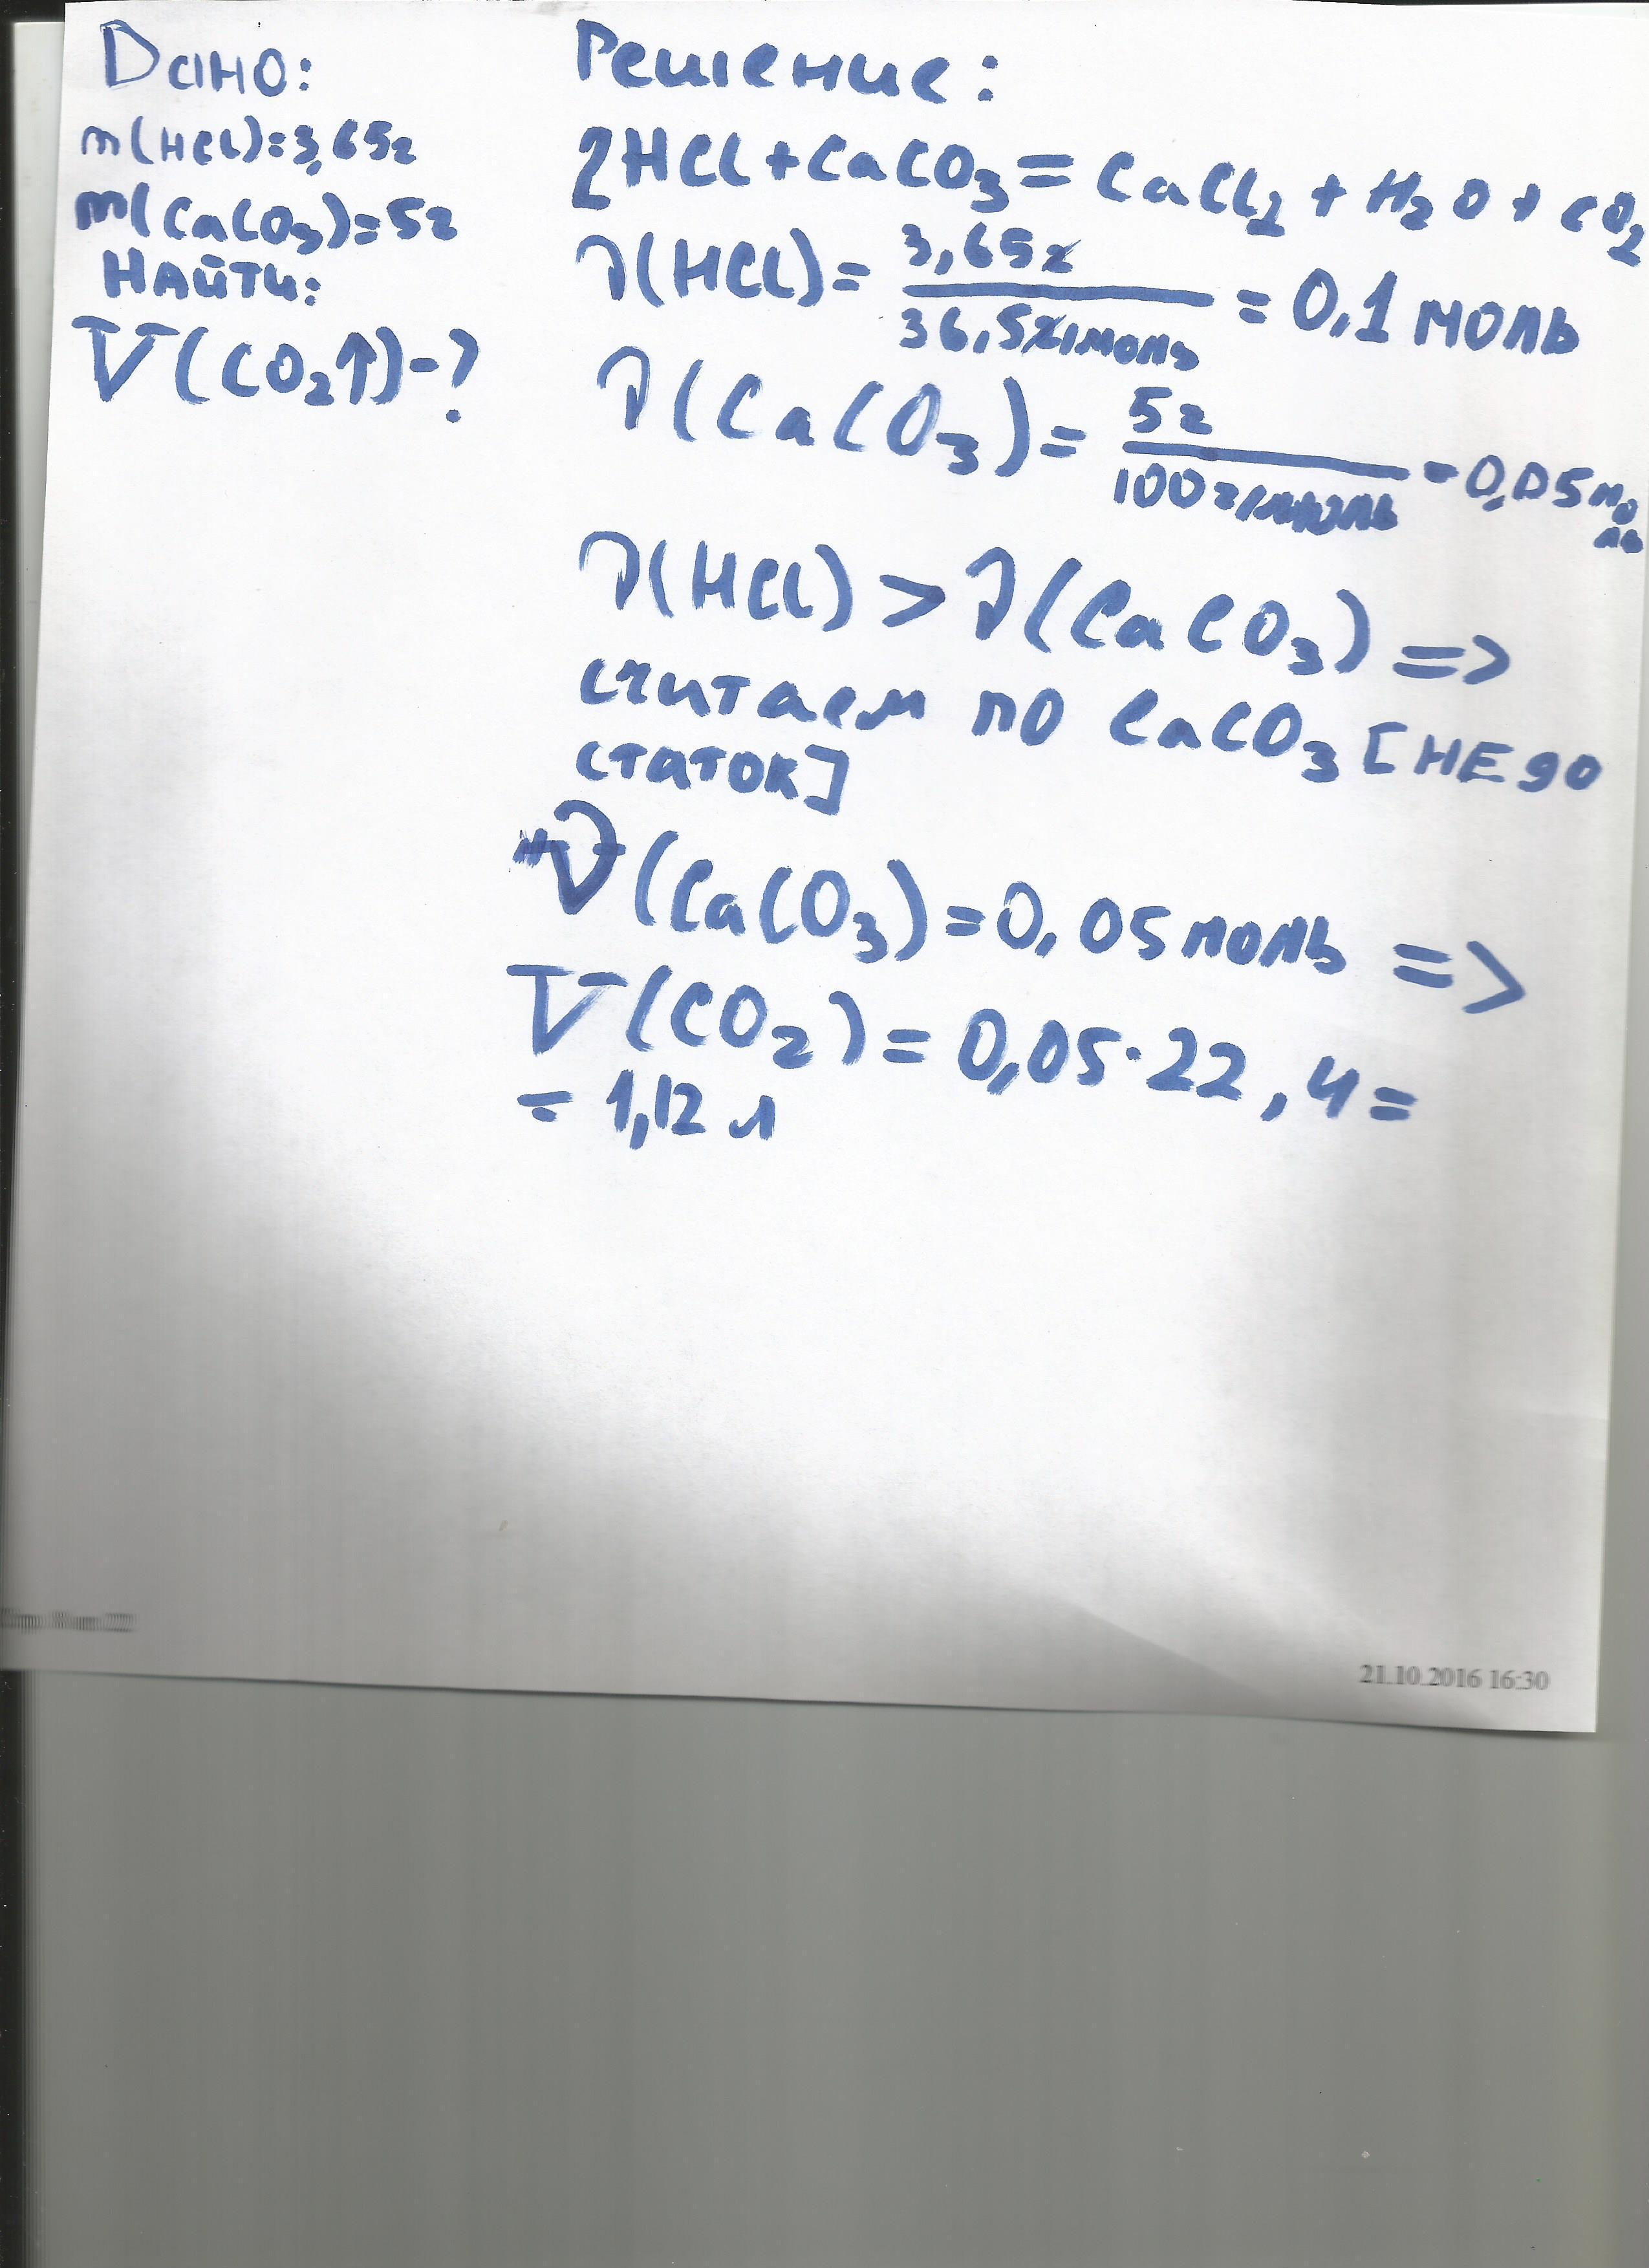 Дано:
m(HCl)=3,65г
m(CaCO₃)=5г
НАЙТИ:
V(CO₂↑)-?
Решение:
2HCl+CaCO₃=CaCl₂+H₂O+CO₂
ν(HCl)=3,65г/36,5г/моль=0,1 моль
ν(CaCO₃)=5г/100г/моль=0,05моль
ν(HCl)>ν(CaCO₃)=>
считаем по CaCO₃[НЕдо
статок]
ν(CaCO₃)=0,05моль=>
V(CO₂)=0,05·22,4=
=1,12л
21.10.2016 16:30